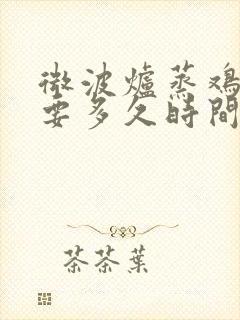 微波爐蒸鸡
要多久時間
茶茶葉